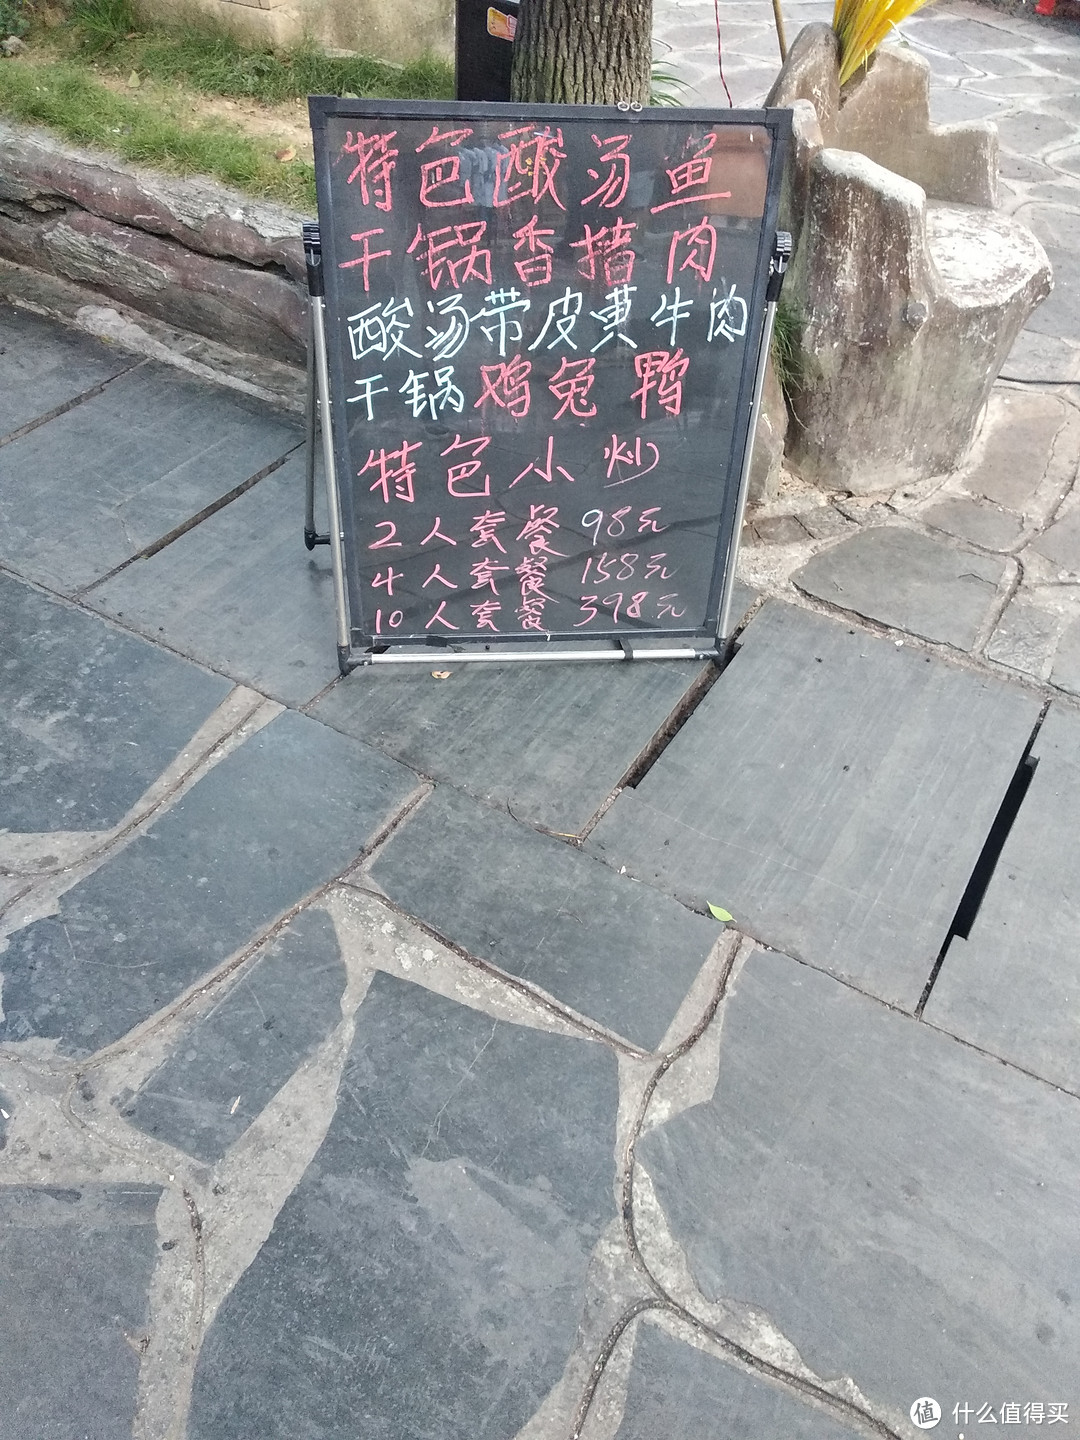 特色酸汤鱼
干锅香猪肉
酸汤带皮黄牛肉
干锅鸡兔鸭
特色小炒
2人套餐 98元
4人套餐 158元
10人套餐 398元
值 什么值得买